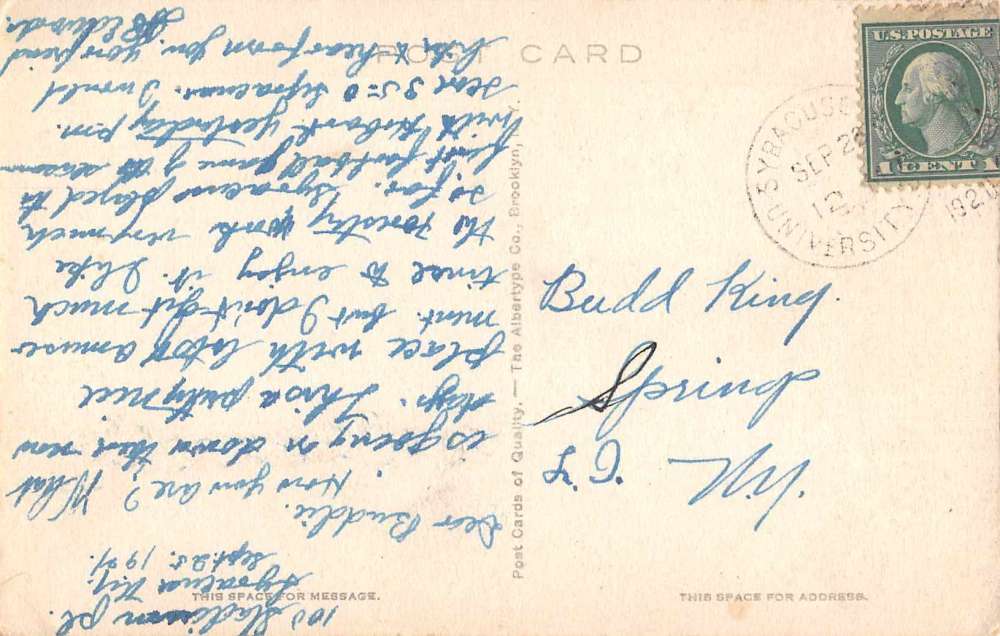 POST CARD
U.S. POSTAGE
1 CENT 1
SYRACUSE
SEP 26
12
UNIVERSITY
192
Budd King.
Spring
L. I. N.Y.
THIS SPACE FOR ADDRESS.
Post Cards of Quality. — The Albertype Co., Brooklyn, N.Y.
THIS SPACE FOR MESSAGE.
100 Pl.
Syracuse N.Y.
Sept. 25. 1921.
Dear Buddie.
How you are? What
is going on down there now
days. This a pretty nice
place with lots of amuse
ment. but I don't get much
time to enjoy it. I like
the Forestry work very much
so far. Syracuse played the
first football game of the season
with Hobart yesterday p.m.
score 35=0 Syracuse. I would
like to hear from you. your friend
Edwards.